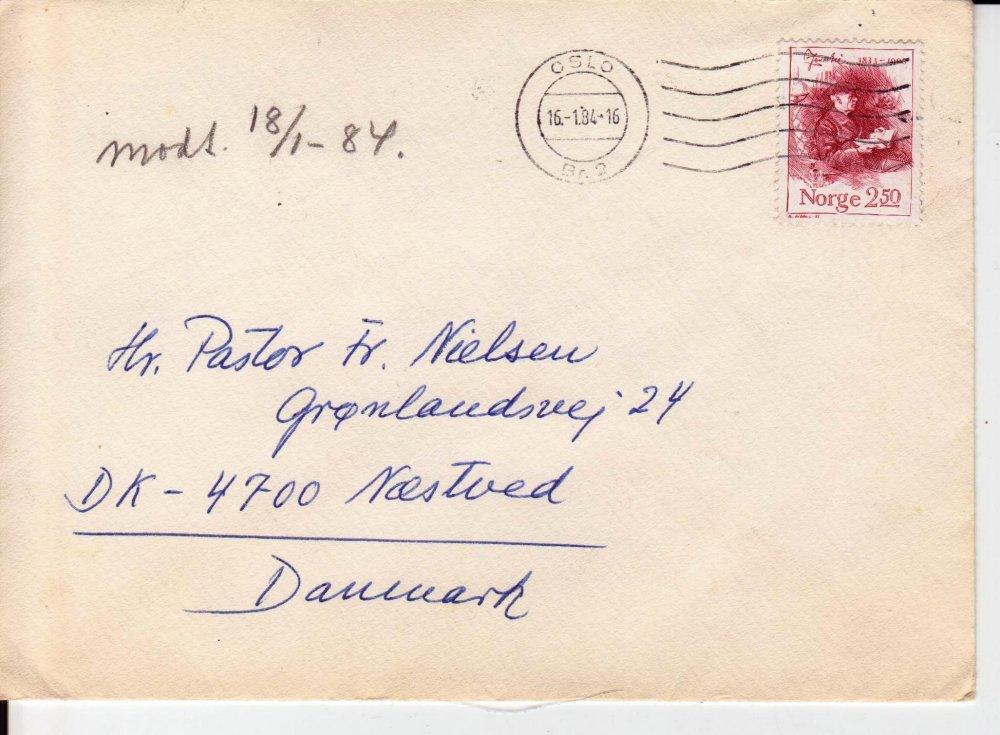 OSLO
16.-1.84-16
Br. 2
1833-1908
Norge 2.50
modt. 18/1-84.
Hr. Pastor Fr. Nielsen
Grønlandsvej 24
DK-4700 Næstved
Danmark